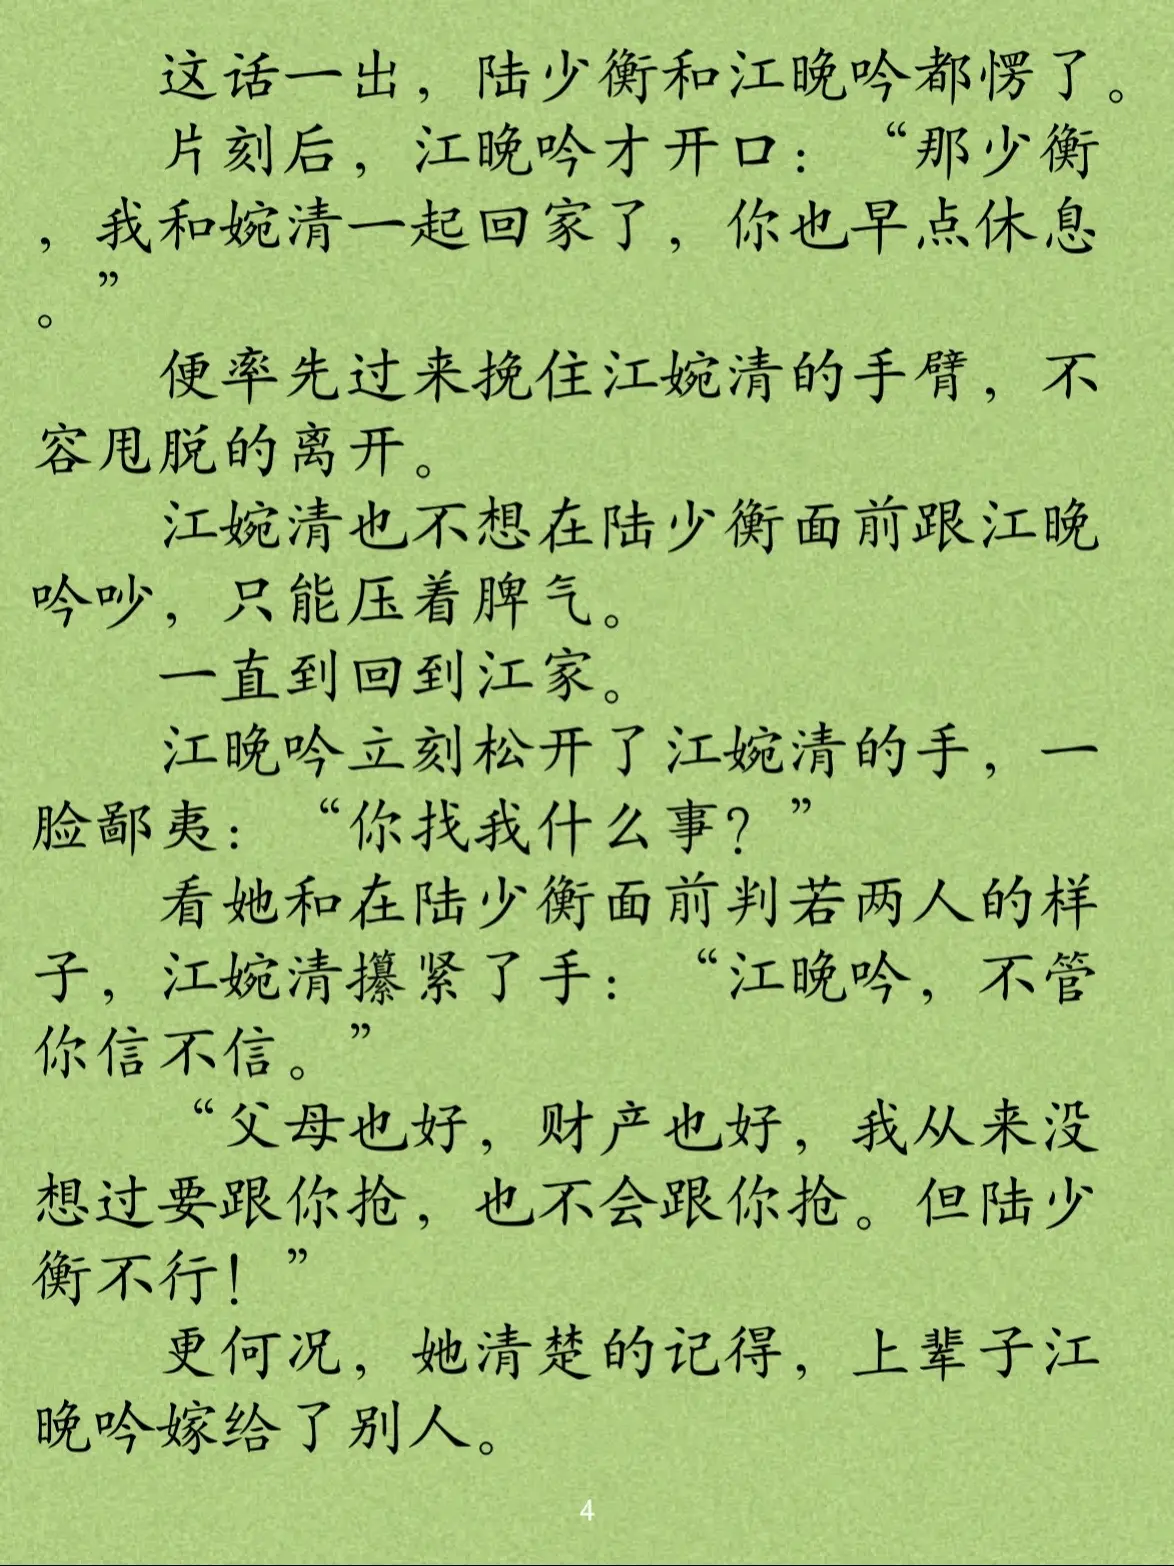 这话一出，陆少衡和江晚吟都愣了。
片刻后，江晚吟才开口：“那少衡
，我和婉清一起回家了，你也早点休息
。”
便率先过来挽住江婉清的手臂，不
容甩脱的离开。
江婉清也不想在陆少衡面前跟江晚
吟吵，只能压着脾气。
一直到回到江家。
江晚吟立刻松开了江婉清的手，一
脸鄙夷：“你找我什么事？”
看她和在陆少衡面前判若两人的样
子，江婉清攥紧了手：“江晚吟，不管
你信不信。”
“父母也好，财产也好，我从来没
想过要跟你抢，也不会跟你抢。但陆少
衡不行！”
更何况，她清楚的记得，上辈子江
晚吟嫁给了别人。
4